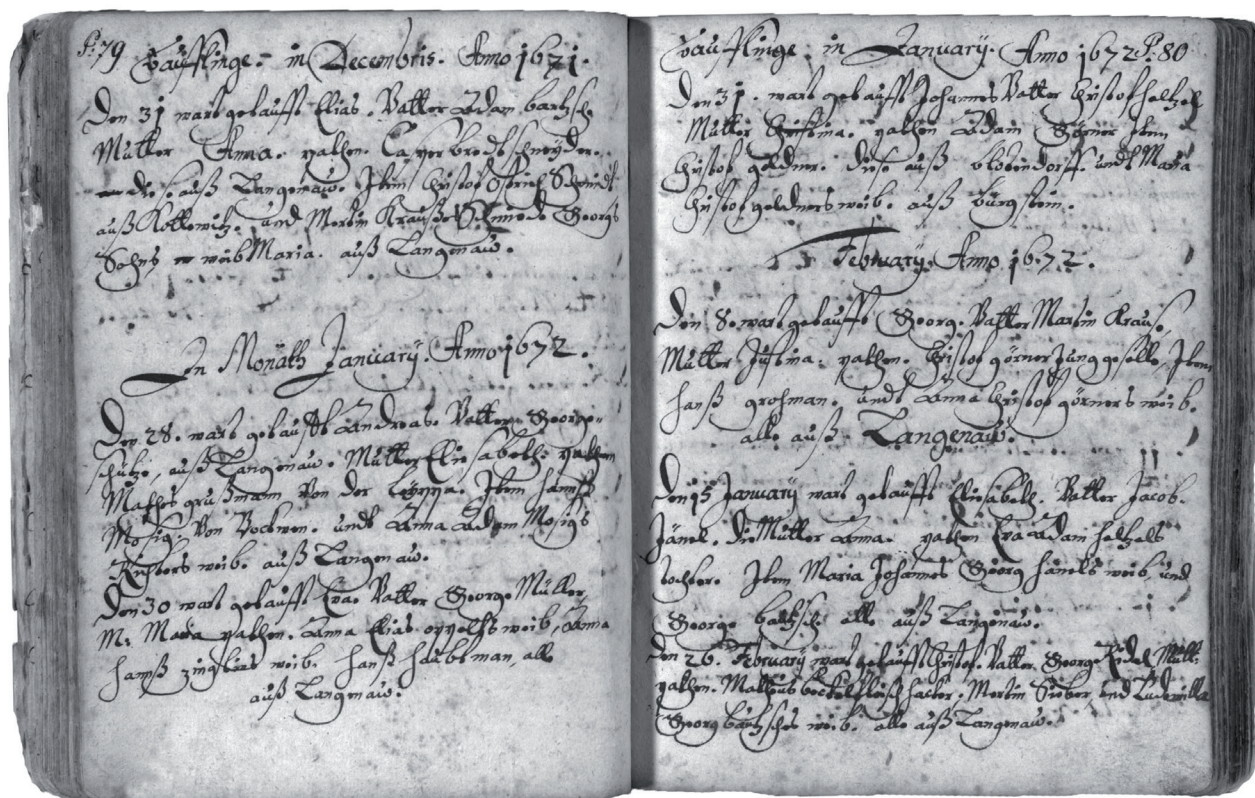 P: 79
Täufflinge. in Decembris. Anno 1671.
Den 31 ward getaufft Elias. Vatter Adam
Mutter Anna. pathen. Casper bredtschneyder.
diese auß Langenaw. Item Christof Schmidt
auß Kottowitz. und Merten Krauße Schmiedt Georgs
Sohns weib Maria. auß Langenaw.
In Monath January. Anno 1672.
Den 28. ward getaufft Andreas. Vatter George
schütze, auß Langenaw. Mutter Eliesabeth. pathen
Mathes grußmann Von der Leyppa. Item hannß
Mosig. Von undt Anna Adam Mosigs
weib. auß Langenaw.
Den 30 ward getaufft Eva. Vatter George Müller,
M: Maria pathen. Anna Elias weib, Anna
hannß weib. hanß haubtman, alle
auß Langenaw.
P. 80
Täufflinge in January. Anno 1672
Den 31. ward getaufft Johannes Vatter Christof heltzel,
Mutter Christina. pathen Adam Görner Item
Christof geldner. diese auß undt Maria
Christof geldners weib. auß bürgstein.
February. Anno 1672.
Den 8. ward getaufft Georg. Vatter Martin Krause,
Mutter Justina: pathen. Christof görner Junggeselle, Item
hanß großman. undt Anna Christof görners weib.
alle auß Langenaw.
Den 15 January ward getaufft Eliesabeth. Vatter Jacob.
Jänel. die Mutter Anna. pathen Eva Adam heltzels
tochter. Item Maria Johannes Georg hänels weib, und
George alle auß Langenaw.
Den 26. February ward getaufft Christof. Vatter. George Mutt.
pathen. Mattheus Merten Sieber und Ludomilla
Georg weib. alle auß Langenaw.